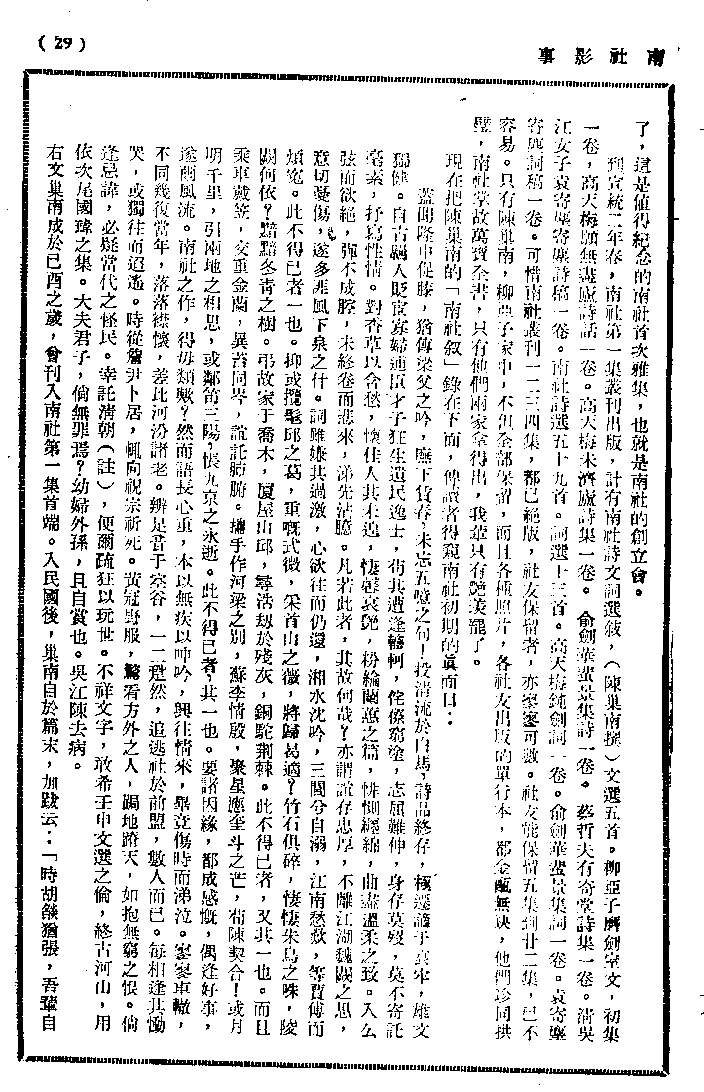 南社影事
(29)
了，這是值得紀念的南社首次雅集，也就是南社的創立會。
到宣統二年春，南社第一集叢刊出版，計有南社詩文詞選敘，（陳巢南撰）文選五首。柳亞子磨劍室文，初集
一卷，高天梅願無盡廬詩話一卷。高天梅未濟廬詩集一卷。俞劍華蜚景集詩一卷。蔡哲夫有寄堂詩集一卷。清吳
江女子袁寄塵寄塵詩稿一卷。南社詩選五十九首。詞選十三首。高天梅鈍劍詞一卷。俞劍華蜚景集詞一卷。袁寄塵
寄塵詞稿一卷。可惜南社叢刊一二三四集，都已絕版，社友保留者，亦寥寥可數。社友能保留五集到廿二集，已不
容易。只有陳巢南，柳亞子家中，不但全部保留，而且各種照片，各社友出版的單行本，都金甌無缺，他們診同拱
璧，南社掌故萬寶全書，只有他們兩家拿得出，我輩只有艷羨罷了。
現在把陳巢南的「南社敘」錄在下面，俾讀者得窺南社初期的眞面目：
蓋聞隆中促膝，猶傳梁父之吟，廡下賃舂，未忘五噫之句！投清流於白馬，詩品終存，極遷謫于哀牢，雄文
猶健。自古騷人貶宦寡婦逋臣才子狂生遺民逸士，苟其遭逢轗軻，侘傺窮塗，志屈難伸，身存莫殁，莫不寄託
毫素，抒寫性情。對香草以含愁，懷佳人其未遑，悽馨哀艷，紛綸蘭蕙之篇，悱惻纏綿，曲盡溫柔之致。人么
弦而欲絕，彈不成腔，未終卷而悲來，涕先沾臆。凡若此者，其故何哉？亦謂誼存忠厚，不離江湖魏闕之思，
意切憂傷，遂多非風下泉之什。詞雖嫌其過激，心欲往而仍還，湘水沈吟，三閭兮自溺，江南愁歎，等賈傅而
煩寃。此不得已者一也。抑或攬髦邱之葛，重嘅式微，采首山之薇，將歸曷適？竹石俱碎，悽悽朱鳥之咮，陵
闕何依？黯黯冬青之樹。弔故家于喬木，厦屋山邱，尋浩劫於殘灰，銅駝荆棘。此不得已者，又其一也。而且
乘車戴笠，交重金蘭，異苔同岑，誼託肺腑。攜手作河梁之別，蘇李情殷，聚星應奎斗之芒，荀陳契合！或月
明千里，引兩地之相思，或鄰笛三陽，悵九京之永逝。此不得已者，其一也。要諸因緣，都成感慨，偶逢好事，
遂爾風流。南社之作，得毋類歟？然而語長心重，本以無疾以呻吟，興往情來，畢竟傷時而涕泣。寥寥車轍，
不同幾復當年，落落襟懷，差比河汾諸老。辨足音于空谷，一二跫然，追逃社於前盟，數人而已。每相逢其慟
哭，或獨往而迢遙。時從詹尹卜居，輒向祝宗祈死。黃冠野服，驚看方外之人，跼地蹐天，如抱無窮之恨。倘
逢忌諱，必疑當代之怪民。幸託清朝（註），便爾疏狂以玩世。不祥文字，敢希壬申文選之倫，終古河山，用
依次尾國瑋之集。大夫君子，倘無罪焉？幼婦外孫，且自賞也。吳江陳去病。
右文巢南成於已酉之歲，會刊入南社第一集首端。入民國後，巢南自於篇末，加跋云：「時胡燄猶張，吾輩自